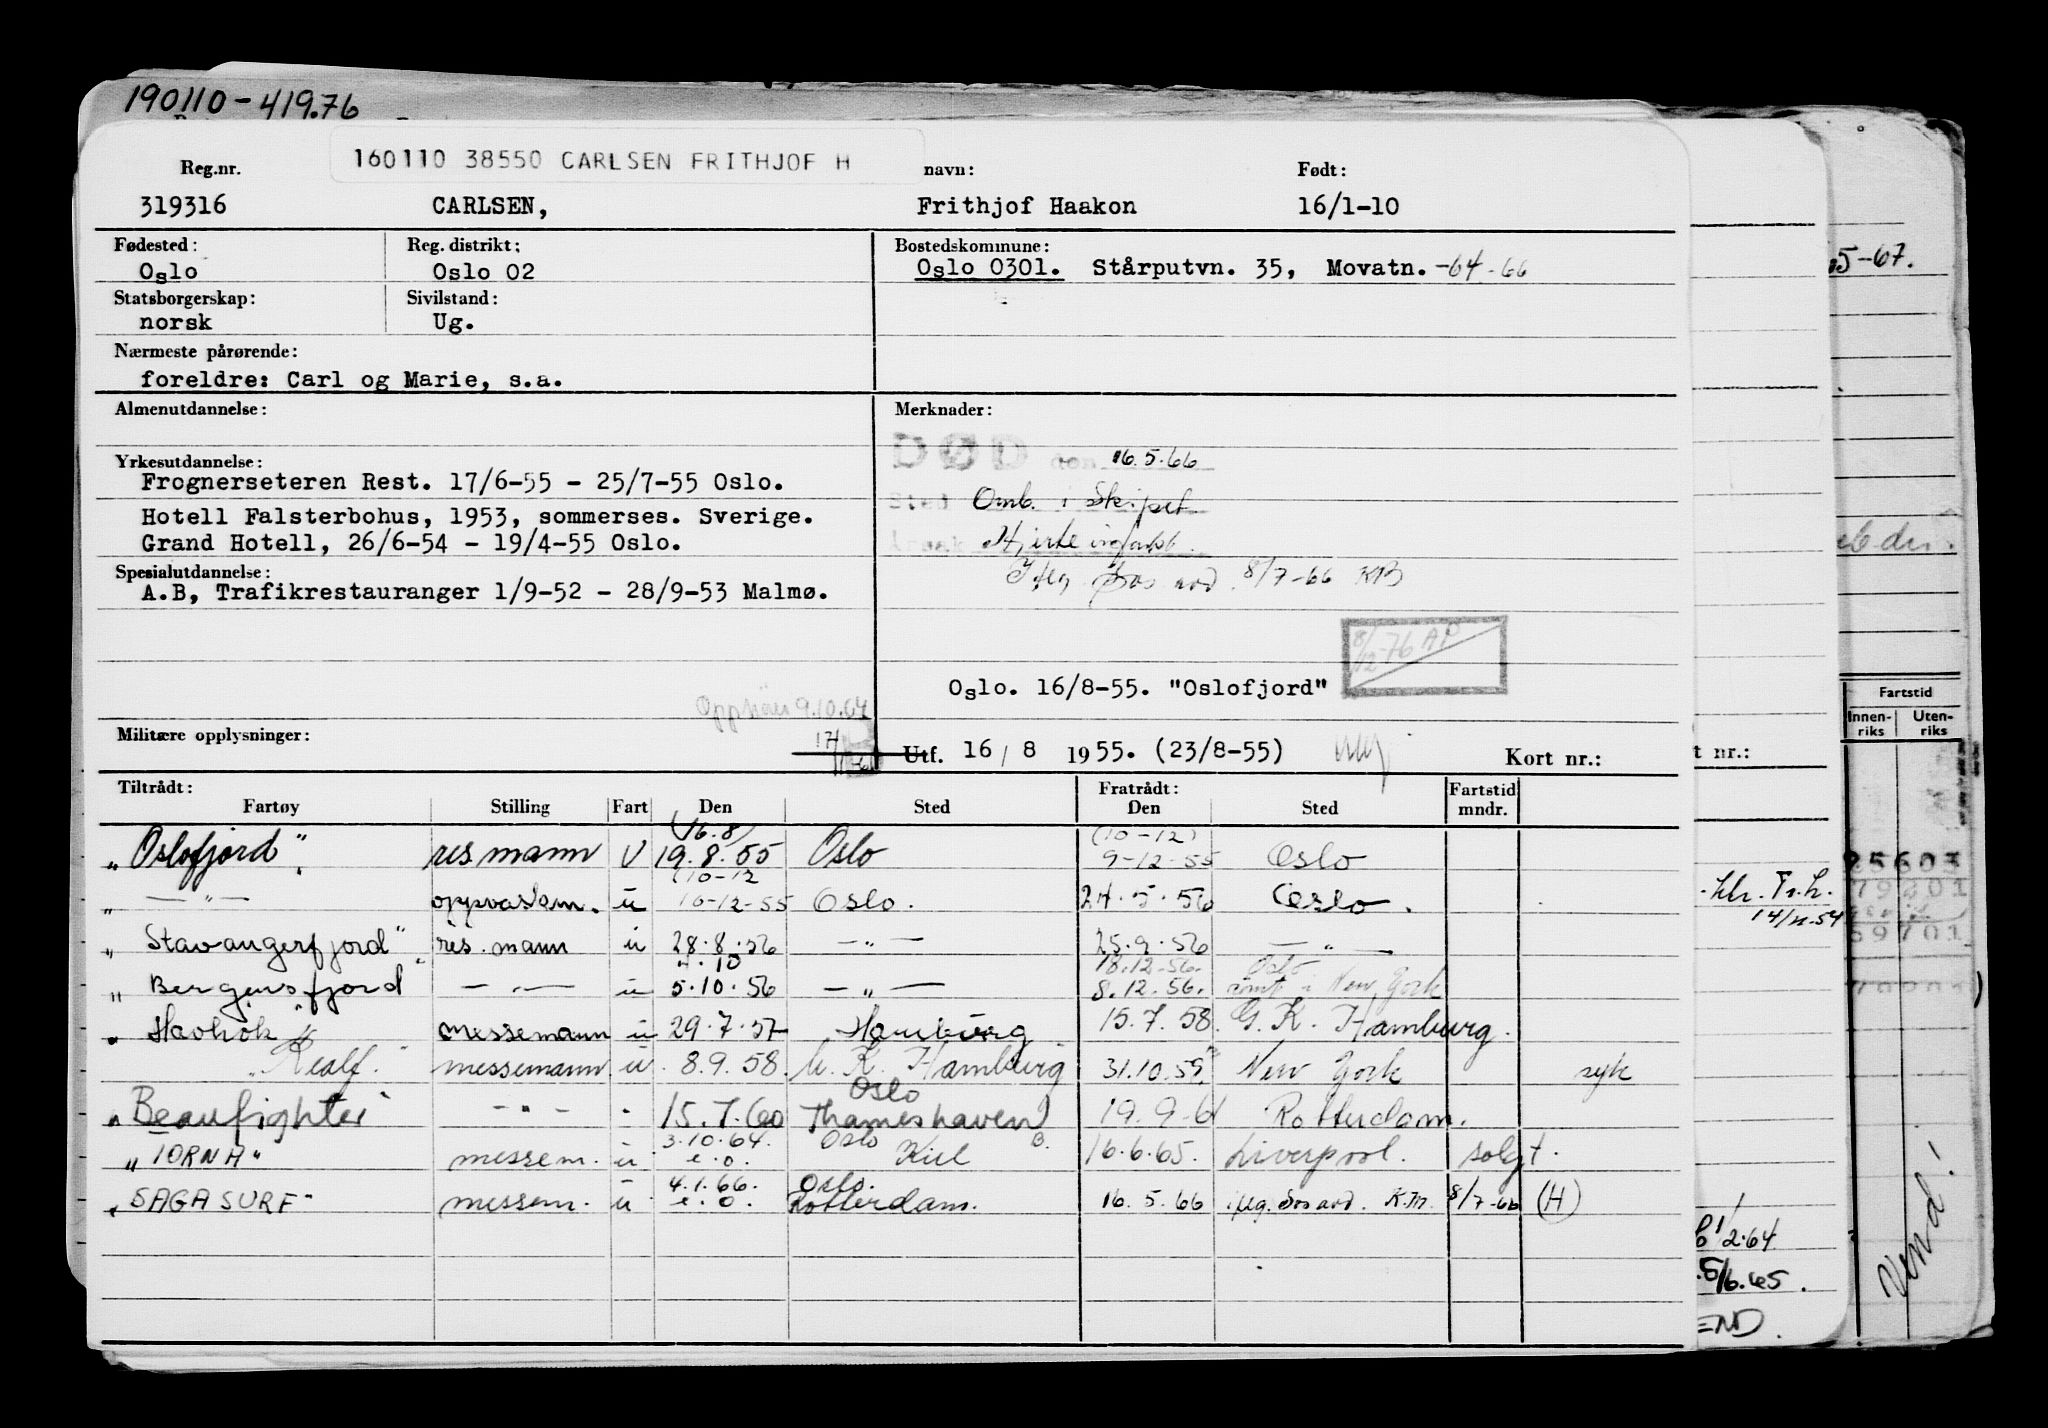 190110-419.76
160110 38550 CARLSEN FRITHJOF H
Reg.nr. navn: Født:
319316 CARLSEN, Frithjof Haakon 16/1-10
Fødested: Reg. distrikt: Bostedskommune:
Oslo Oslo 02 Oslo 0301. Stårputvn. 35, Movatn. -64-66
Statsborgerskap: Sivilstand:
norsk Ug.
Nærmeste pårørende:
foreldre: Carl og Marie, s.a.
Almenutdannelse: Merknader:
DØD den 16.5.66
Yrkesutdannelse:
Frognerseteren Rest. 17/6-55 - 25/7-55 Oslo.
Sted Omb. i Skipet
Hotell Falsterbohus, 1953, sommerses. Sverige.
Grand Hotell, 26/6-54 - 19/4-55 Oslo.
Årsak Hjerteinfarkt.
8/7-66
Spesialutdannelse:
A.B, Trafikrestauranger 1/9-52 - 28/9-53 Malmø.
8/12-76 AP
Oslo. 16/8-55. "Oslofjord"
Opphører 9.10.64
Militære opplysninger: Utf. 16/8 1955. (23/8-55) Kort nr.:
Tiltrådt: Fratrådt: Fartstid
Fartøy Stilling Fart Den Sted Den Sted mndr.
(16.8) (10-12)
"Oslofjord" res mann U 19.8.55 Oslo 9-12-55 Oslo
(10-12
" —"— oppvaskm. u 10-12-55 Oslo. 24.5.56 Oslo.
"Stavangerfjord" res. mann u 28.8.56 —"— 25.9.56 —"—
4.10 18.12.56. Oslo
"Bergensfjord" —"— u 5.10.56 —"— 8.12.56. i New York
"Havhok" messemann u 29.7.57 Hamburg 15.7.58. G.K. Hamburg.
"Realf." messemann u. 8.9.58. G.K. Hamburg 31.10.59. New York syk
Oslo
"Beaufighter" —"— 15.7.60 Thameshaven 19.9.61 Rotterdam.
3.10.64. Oslo
"TORNA" messem. u e.o. Kiel 16.6.65. Liverpool. solgt.
4.1.66. Oslo.
"SAGA SURF" messem. u e.o. Rotterdam. 16.5.66 8/7-66 (H)
5-67.
Fartstid
Innenriks Utenriks
t nr.:
14/11.54
2.64
5/6.65.
END.
Vend!